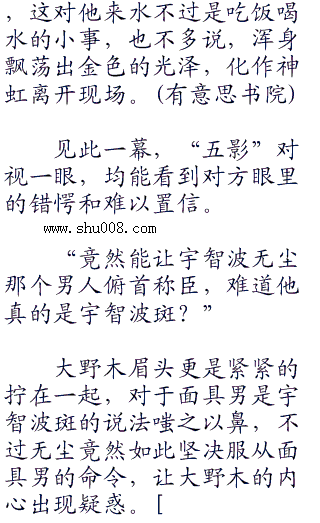 ，这对他来水不过是吃饭喝
水的小事，也不多说，浑身
飘荡出金色的光泽，化作神
虹离开现场。(有意思书院)
见此一幕，“五影”对
视一眼，均能看到对方眼里
的错愕和难以置信。
www.shu008.com
“竟然能让宇智波无尘
那个男人俯首称臣，难道他
真的是宇智波斑？”
大野木眉头更是紧紧的
拧在一起，对于面具男是宇
智波斑的说法嗤之以鼻，不
过无尘竟然如此坚决服从面
具男的命令，让大野木的内
心出现疑惑。[